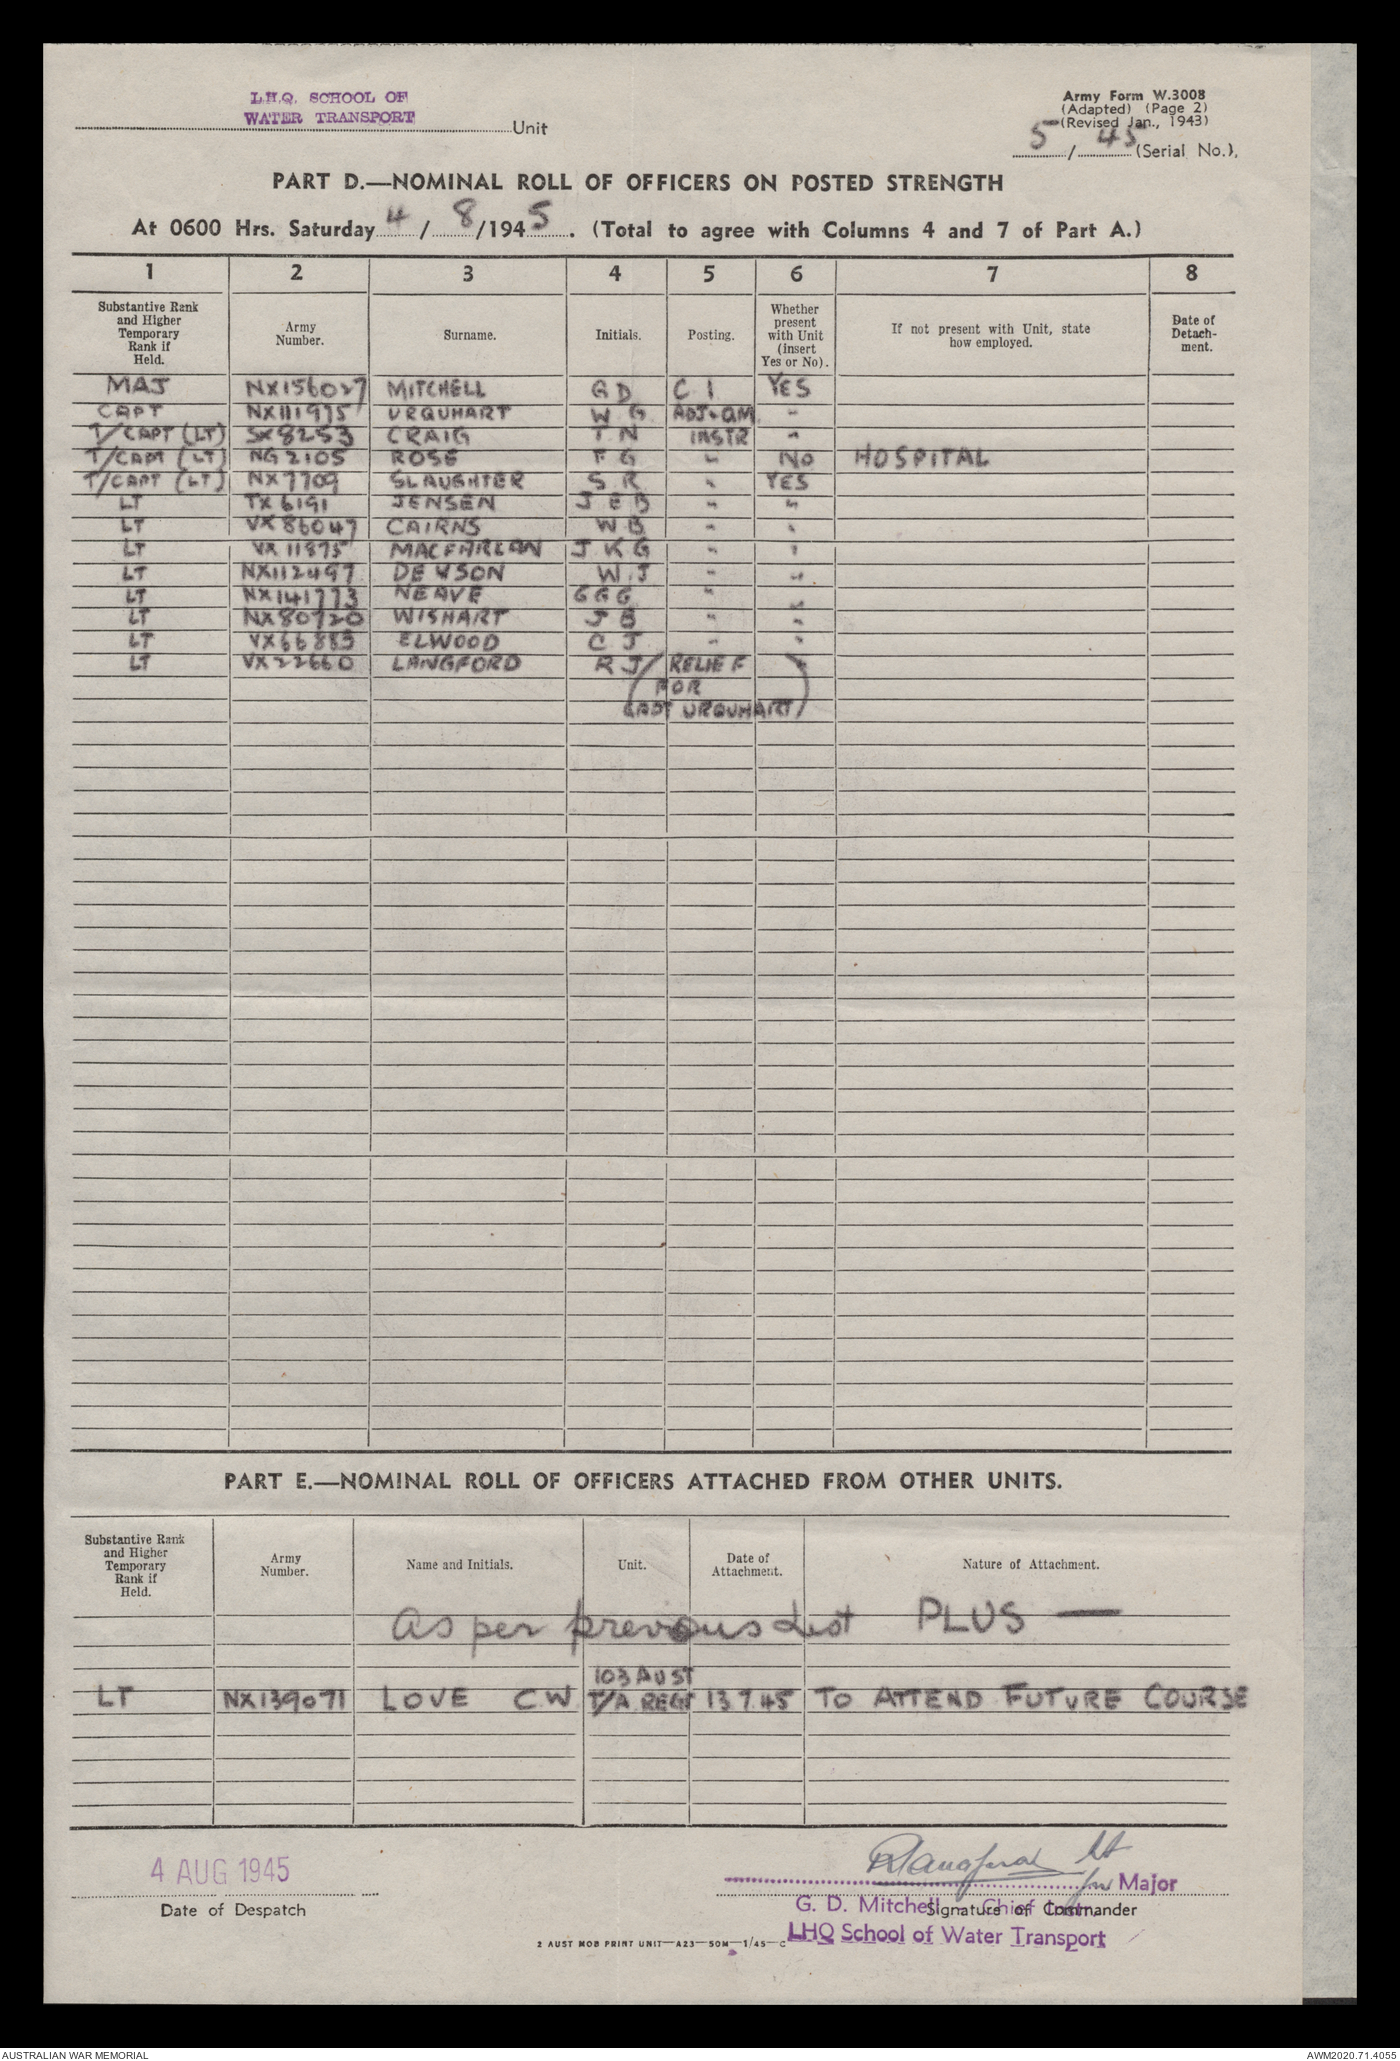 L.H.Q. SCHOOL OF
WATER TRANSPORT
Unit
Army Form W.3008
(Adapted) (Page 2)
(Revised Jan., 1943)
5 / 45 (Serial No.),
PART D.—NOMINAL ROLL OF OFFICERS ON POSTED STRENGTH
At 0600 Hrs. Saturday 4 / 8 /1945. (Total to agree with Columns 4 and 7 of Part A.)
1 2 3 4 5 6 7 8
Substantive Rank and Higher Temporary Rank if Held. Army Number. Surname. Initials. Posting. Whether present with Unit (insert Yes or No). If not present with Unit, state how employed. Date of Detach-ment.
MAJ NX156027 MITCHELL G D C I YES
CAPT NX111975 URQUHART W G ADJ & QM "
T/CAPT (LT) SX8253 CRAIG T N INSTR "
T/CAPT (LT) NG2105 ROSE F G " NO HOSPITAL
T/CAPT (LT) NX7709 SLAUGHTER S R " YES
LT TX6191 JENSEN J E B " "
LT VX86047 CAIRNS W B " "
LT VX11875 MACFARLAN J K G " "
LT NX112497 DEWSON W J " "
LT NX141773 NEAVE G G G " "
LT NX80720 WISHART J B " "
LT VX66883 ELWOOD C J " "
LT VX22660 LANGFORD R J (RELIEF
FOR
CAPT URQUHART)
PART E.—NOMINAL ROLL OF OFFICERS ATTACHED FROM OTHER UNITS.
Substantive Rank and Higher Temporary Rank if Held. Army Number. Name and Initials. Unit. Date of Attachment. Nature of Attachment.
As per previous List PLUS —
103 AUST
LT NX139071 LOVE C W T/A REGT 13.7.45 TO ATTEND FUTURE COURSE
4 AUG 1945
Date of Despatch
RLangford Lt
for Major
G. D. Mitchell Chief Instr.
Signature of Commander
LHQ School of Water Transport
2 AUST MOB PRINT UNIT—A23—50M—1/45—C
AUSTRALIAN WAR MEMORIAL
AWM2020.71.4055